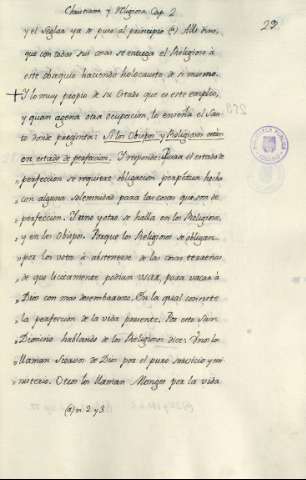 Christiana y Religiosa Cap. 2
29
y el Seglar ya se puso al principio (a) Alli dixe,
que con todas sus cosas se entrega el Religioso à
este obsequio haciendo holocausto de si mismo.
Y lo muy propio de su Estado que es este empleo,
y quan agena otra ocupacion, lo enseña el San-
to donde pregunta: Si los Obispos y Religiosos estàn
en estado de perfeccion. Y responde: Para el estado de
perfeccion se requiere obligacion perpetua hecha
con alguna solemnidad para las cosas que son de
perfeccion. Y uno y otro se halla en los Religiosos,
y en los Obispos. Porque los Religiosos se obligan
por los votos à abstenerse de las cosas terrenas
de que licitamente podian usar, para vacar à
Dios con mas desembarazo. En lo qual consiste
la perfeccion de la vida presente. Por esto San
Dionisio hablando de los Religiosos dice: Unos los
llaman Siervos de Dios por el puro servicio y mi-
nisterio. Otros los llaman Monges por la vida
(a) n. 2 y 3.